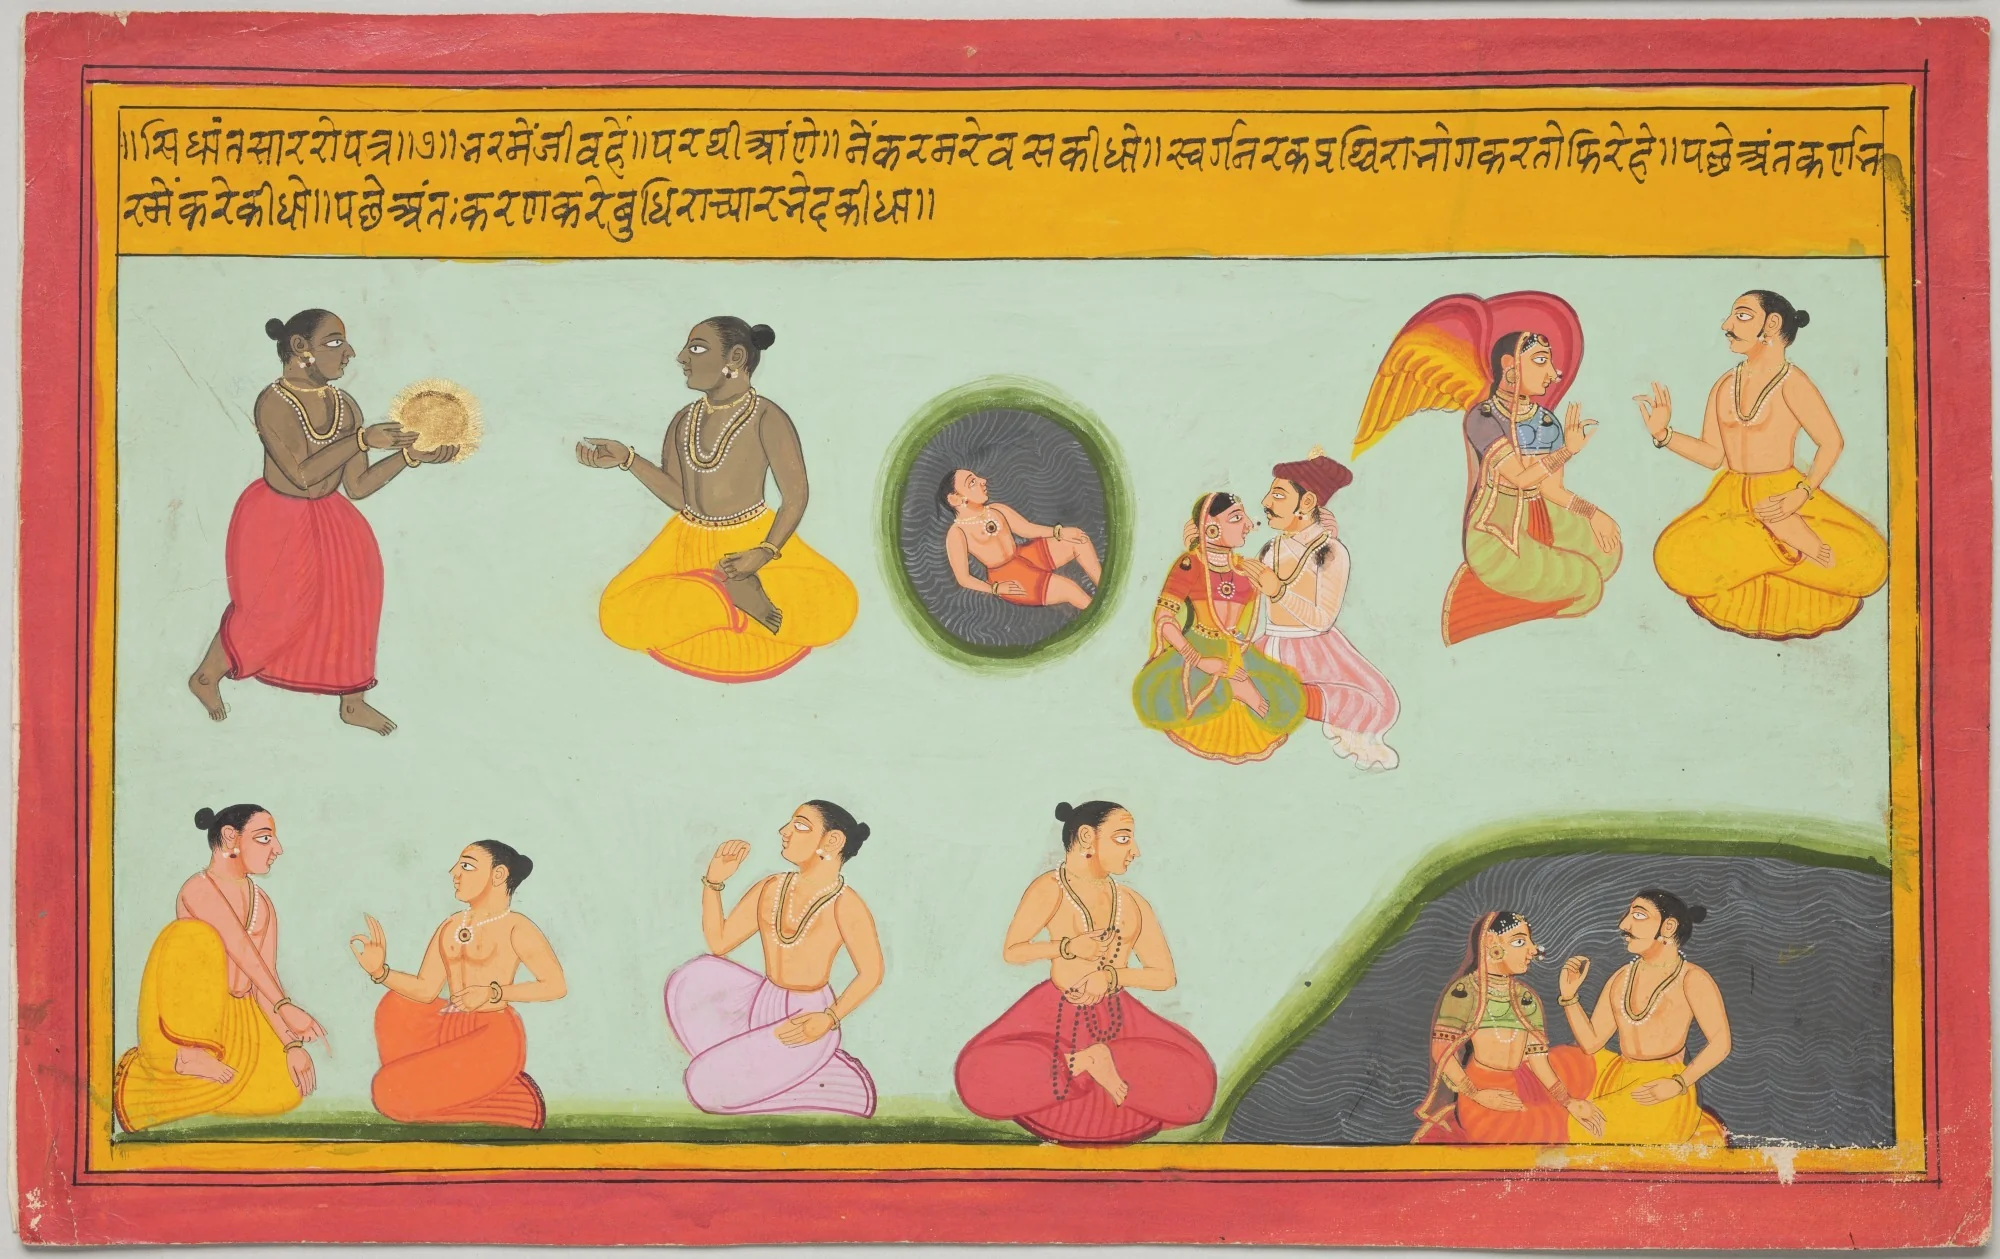 ॥सिधांतसाररोपत्र॥७॥भरमेंजीवहें॥परथीआंणे॥नेंकरमरेवसकीधो॥स्वर्गनरकप्रथिराभोगकरतोफिरेहे॥पछेअंतकर्णभ
रमेंकरेकीधो॥पछेअंतःकरणकरेबुधिराच्यारभेदकीधा॥